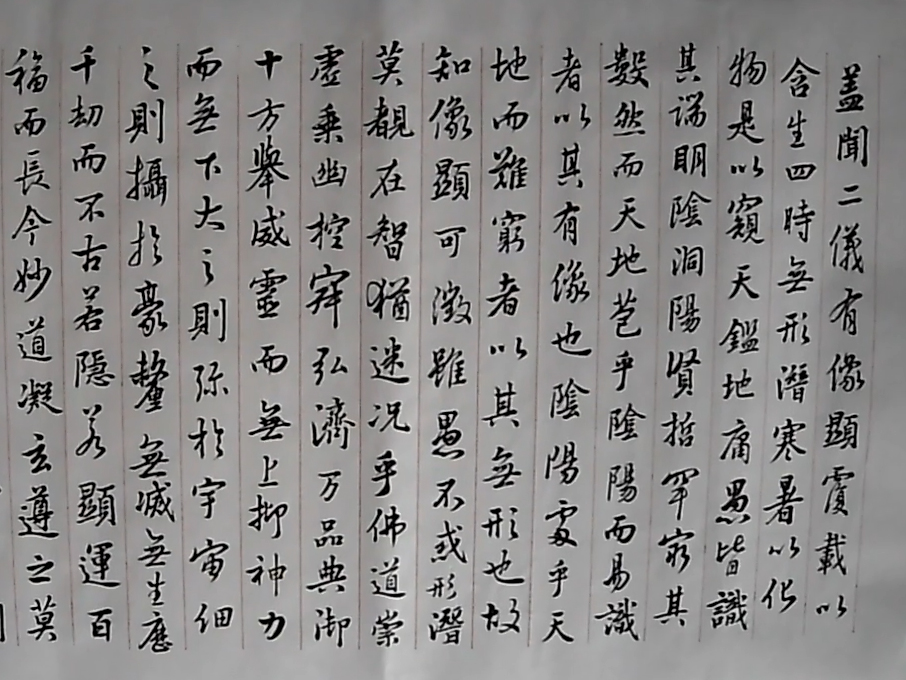 盖聞二儀有像顯覆載以
含生四時無形潛寒暑以化
物是以窺天鑑地庸愚皆識
其端明陰洞陽賢哲罕窮其
數然而天地苞乎陰陽而易識
者以其有像也陰陽處乎天
地而難窮者以其無形也故
知像顯可徵雖愚不惑形潛
莫覩在智猶迷况乎佛道崇
虛乘幽控寂弘濟万品典御
十方舉威靈而無上抑神力
而無下大之則弥於宇宙細
之則攝於豪釐無滅無生歷
千劫而不古若隱若顯運百
福而長今妙道凝玄遵之莫